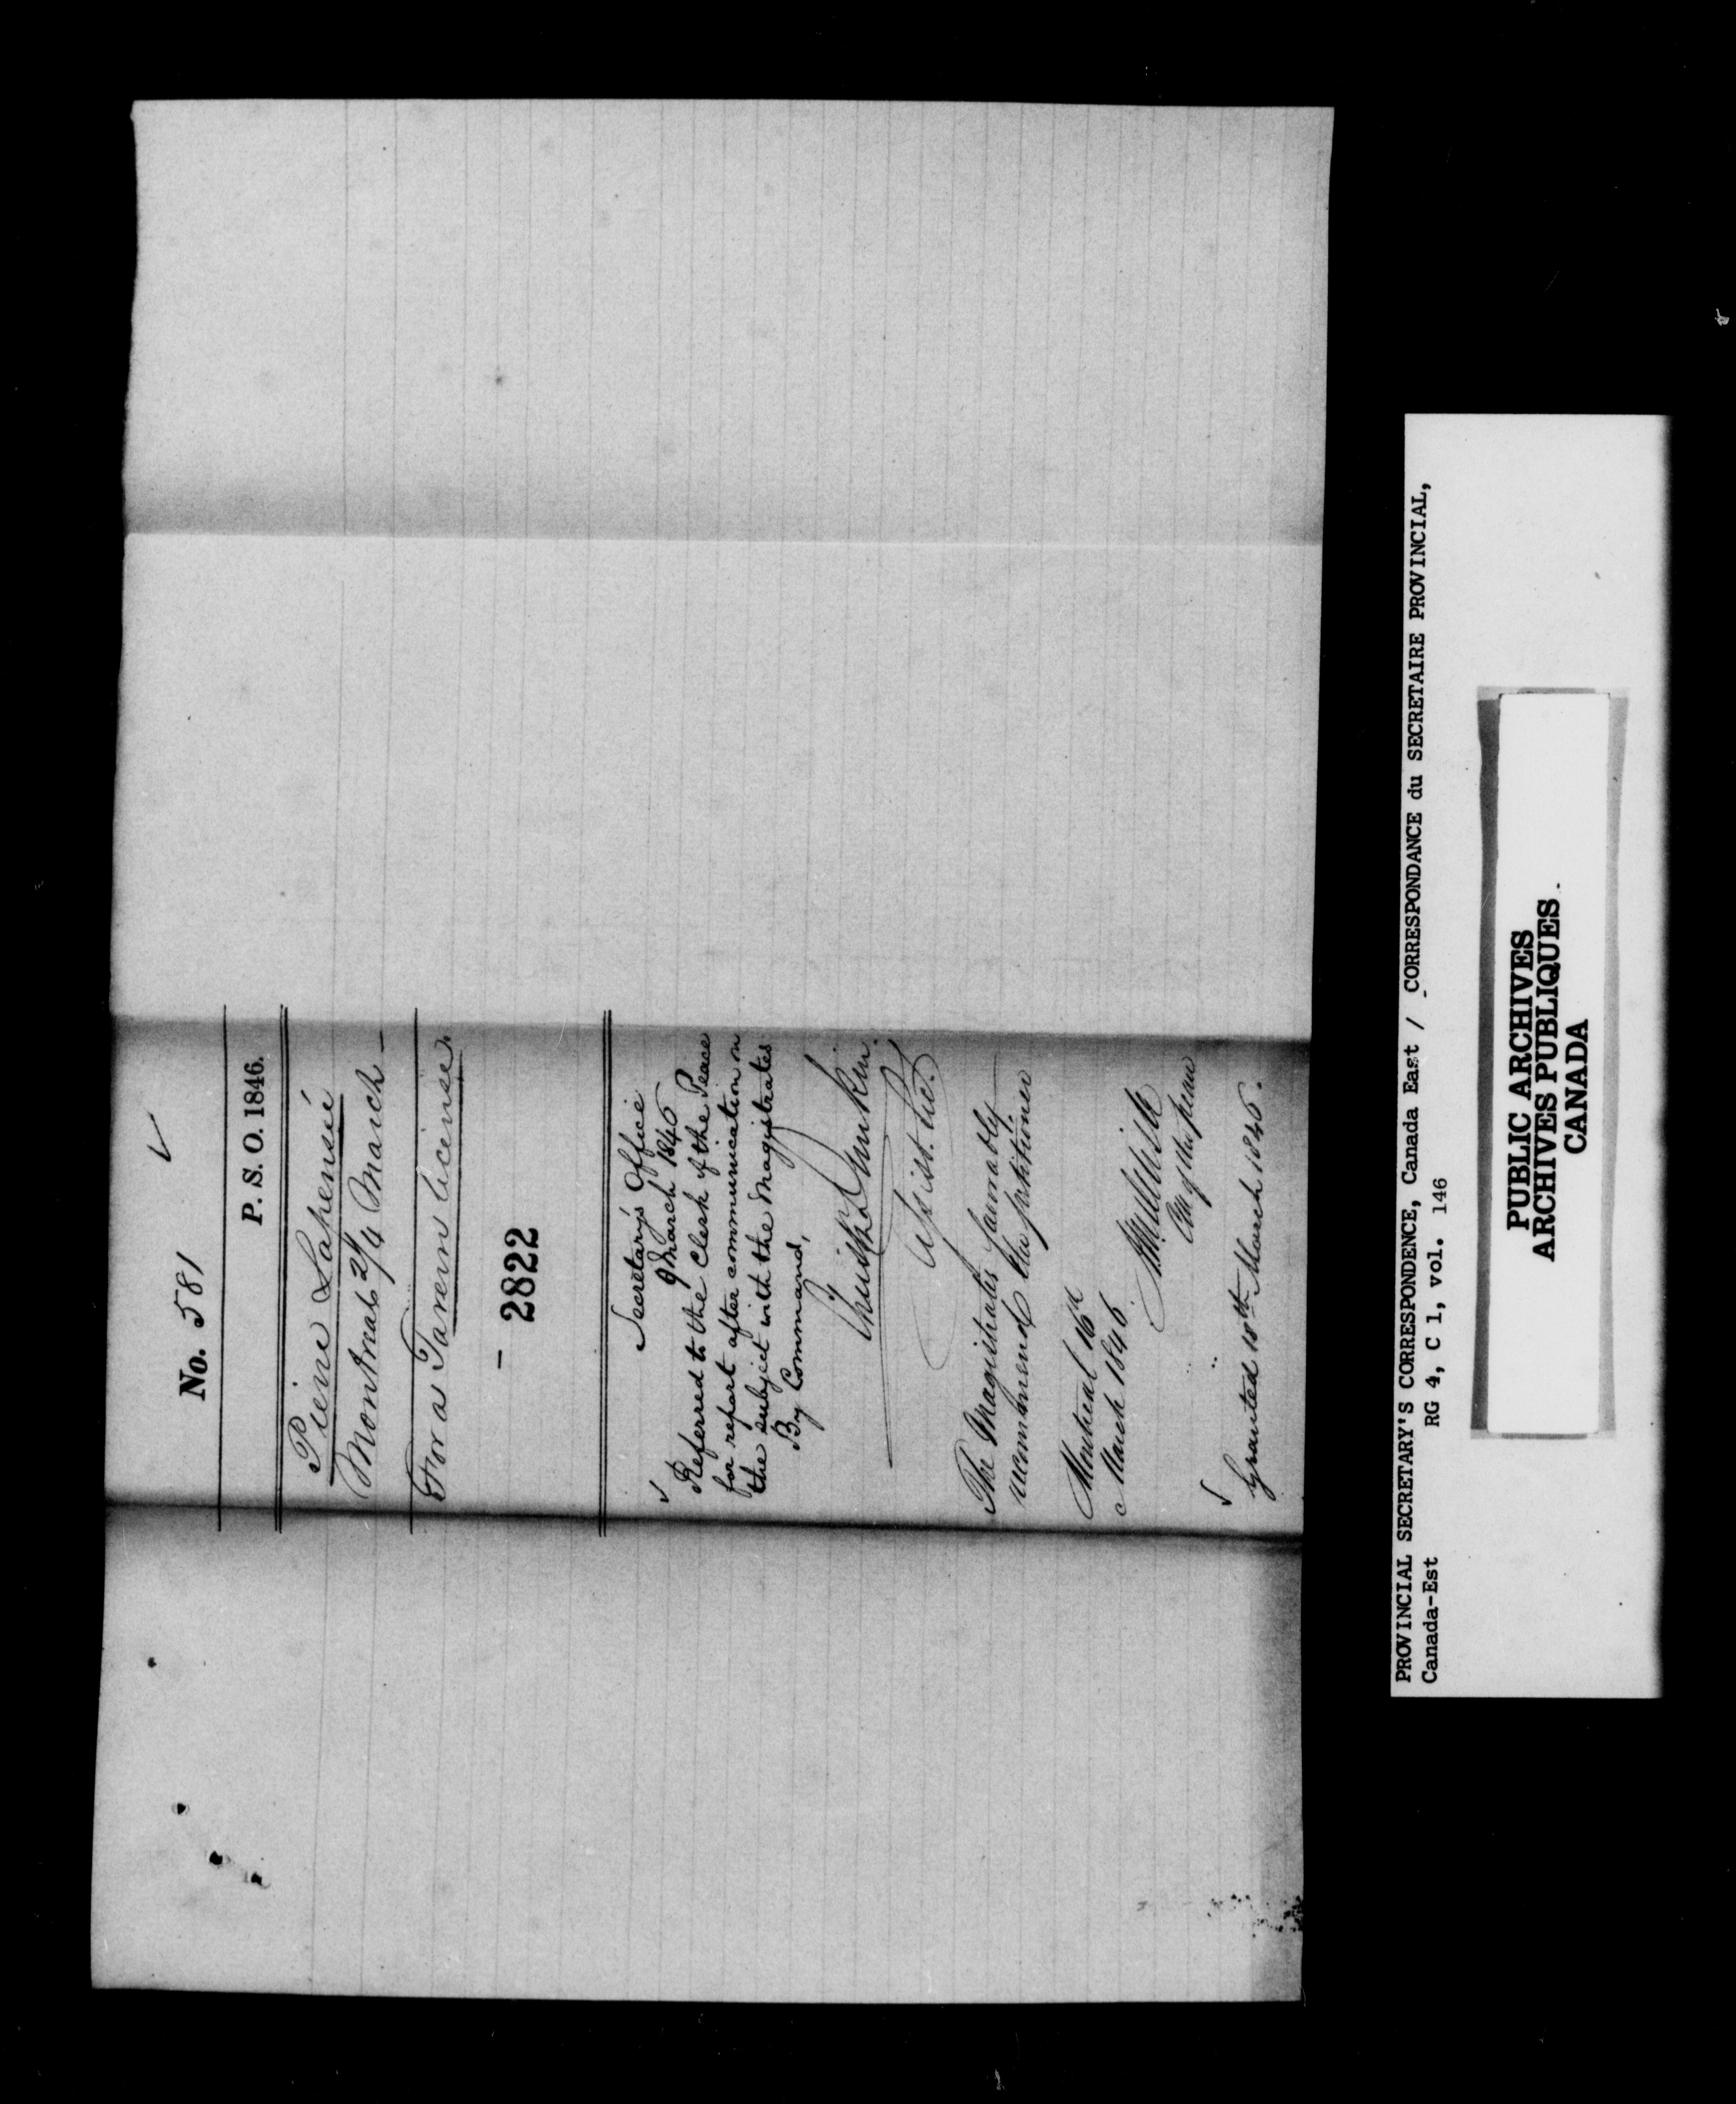 No. 581
P. S. O. 1846.
Pierre Lapensée
Montreal 2/4 March
For a Tavern license.
2822
Secretary's Office
9 March 1846
Referred to the Clerk of the Peace
for report after communication on
the subject with the Magistrates
By Command,
Christr Dunkin
Assist. Sec.
The Magistrates favorably
recommend the petitioner
Montreal 16th
March 1846
Clk of the peace
Granted 18th March 1846.
PROVINCIAL SECRETARY'S CORRESPONDENCE, Canada East / CORRESPONDANCE du SECRETAIRE PROVINCIAL,
Canada-Est RG 4, C 1, vol. 146
PUBLIC ARCHIVES
ARCHIVES PUBLIQUES
CANADA